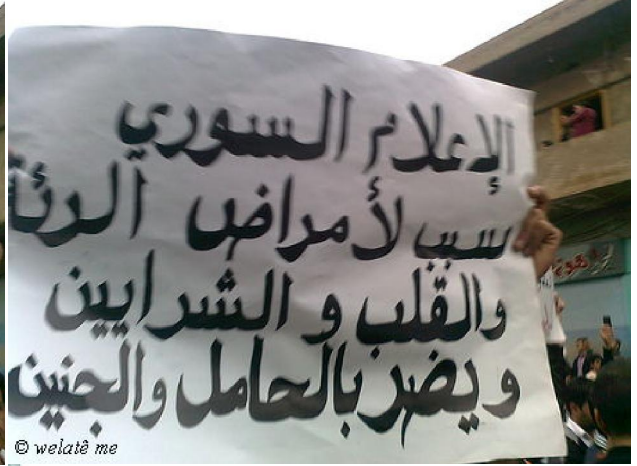 الإعلام السوري
سبب لأمراض الرئة
والقلب و الشرايين
ويضر بالحامل والجنين
© welatê me